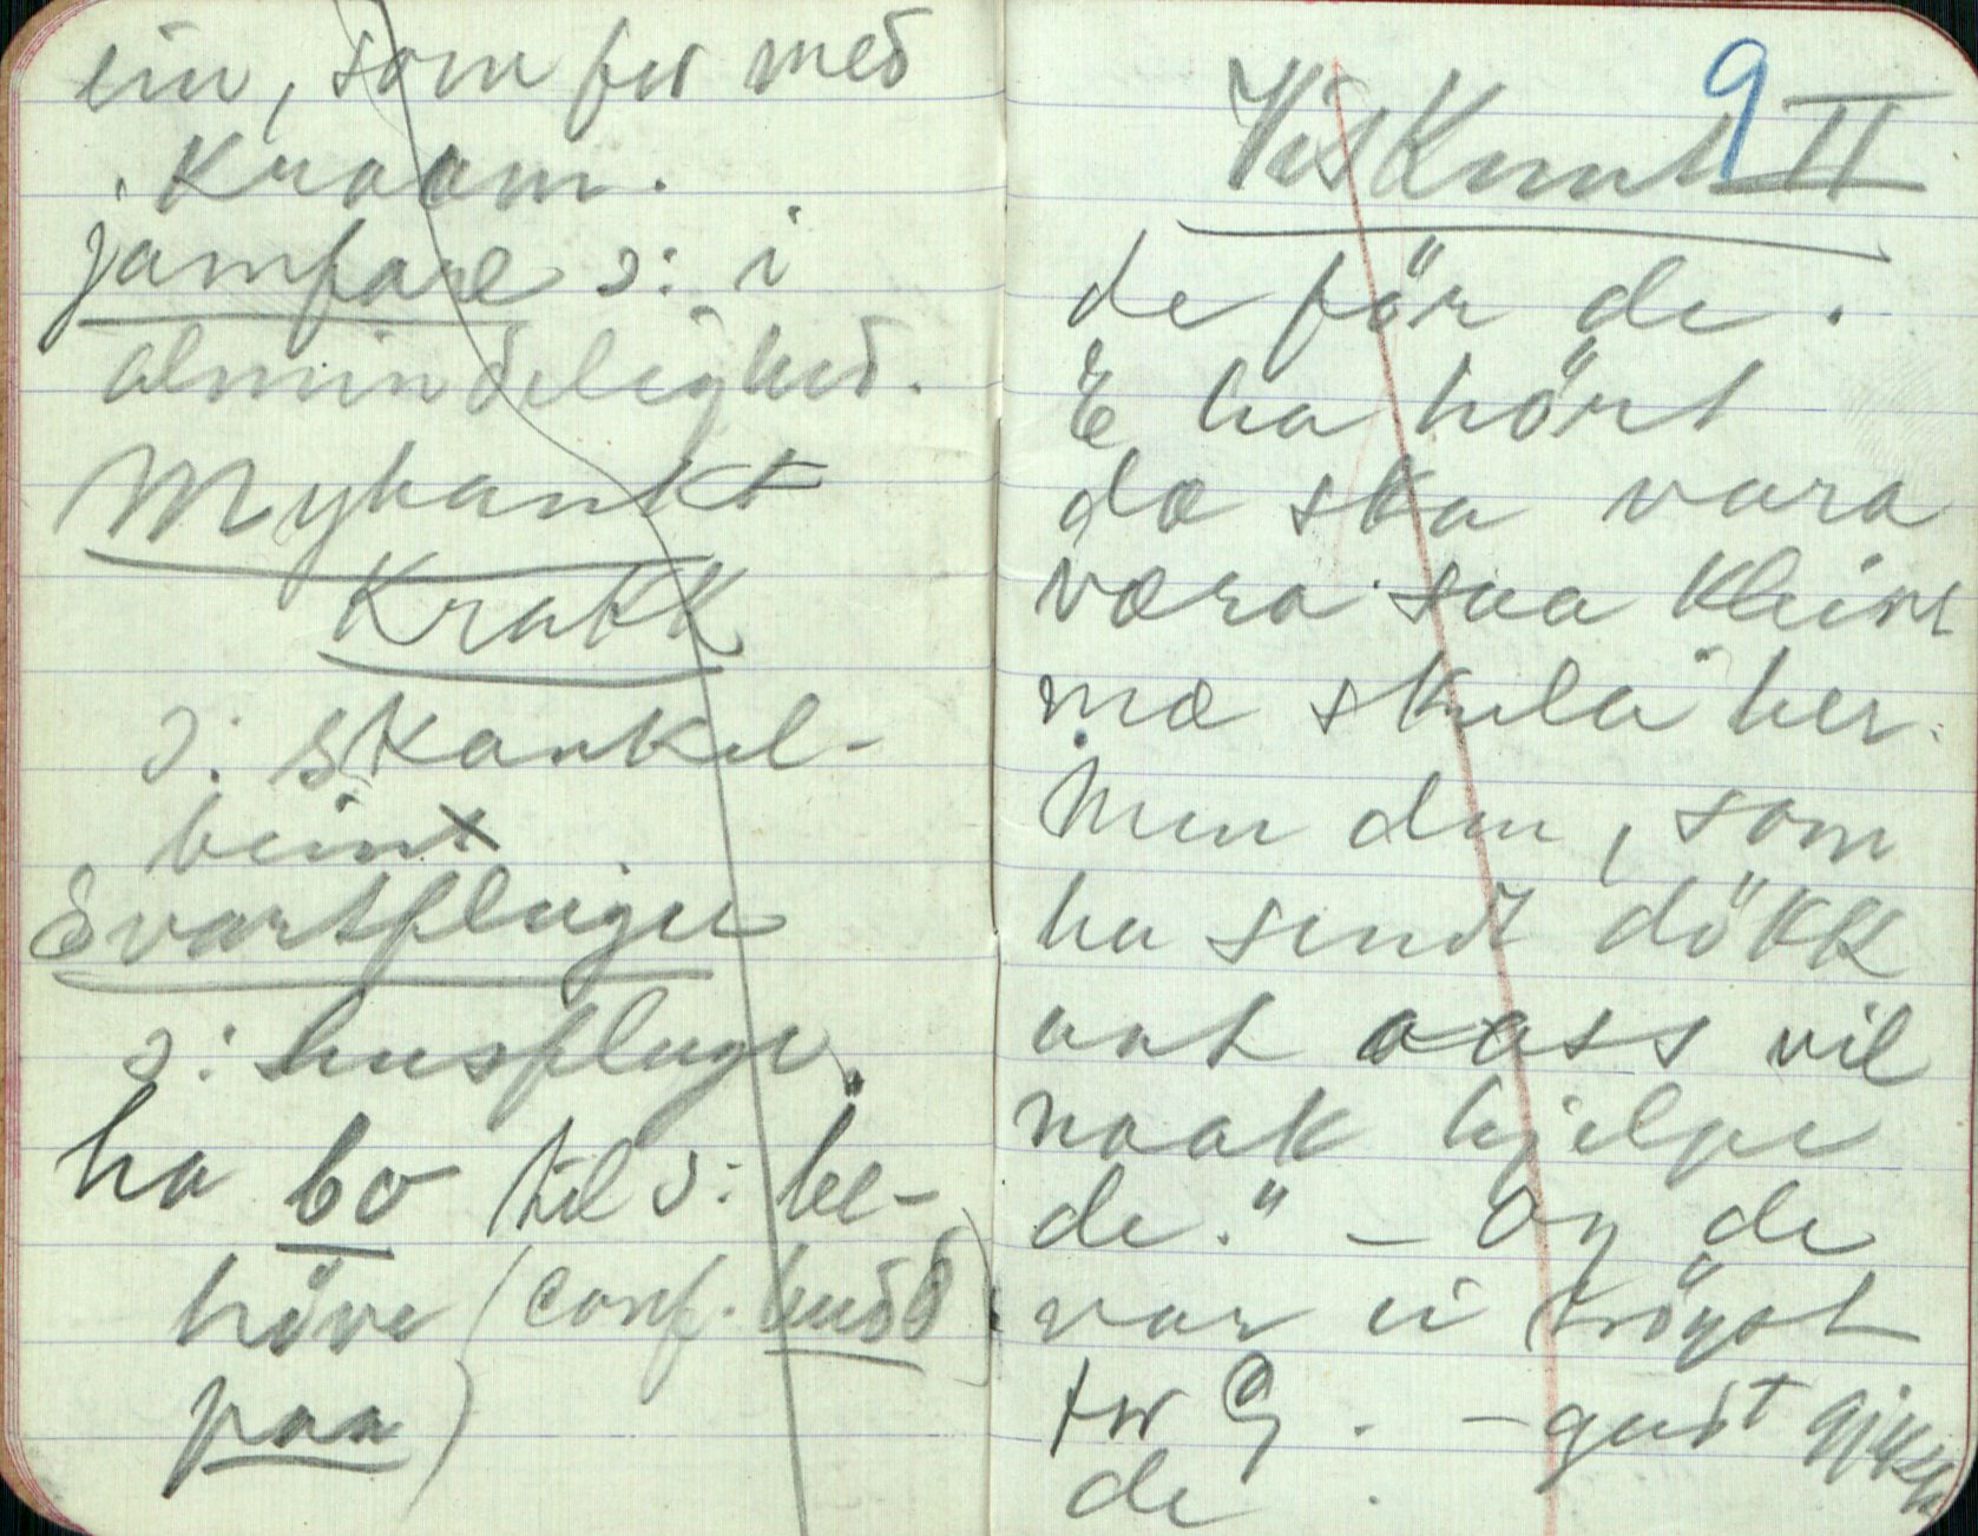 ein, som for med
Kraam.
jamfare ɔ: i
almindelighed.
Myhankt
Krakk
ɔ: skankel-
beint
Svartfluger
ɔ: husfluge.
ha bo til ɔ: be-
höve (conf. budd
paa)
9
VisKnut II
de för de.
E ha hört
dæ ska vara
væra saa kleint
mæ skula her.
Men den, som
ha sendt dökk
aat aass vil
naak hjelpe
de." – Og de
var ei tröyst
for G. – gudt
de